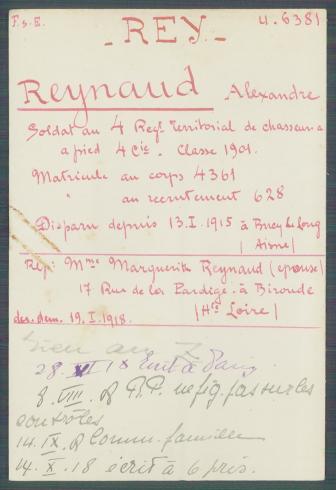 F.s.E. U.6381
- REY -
Reynaud Alexandre
Soldat au 4 Regt Territorial de chasseurs
a pied 4 Cie. Classe 1901.
Matricule au corps 4361
" au recrutement 628
Disparu depuis 13.I.1915 à Bucy le Long
(Aisne)
Rép: Mme Marguerite Reynaud (épouse)
17 Rue de la à
der. dem. 19.I.1918. (Hte Loire)
Rien au
28. écrit à Paris
8. VIII. P.P. ne fig. pas sur les
contrôles
14. IX. Comm. famille
14. X. 18 écrit à 6 pris.